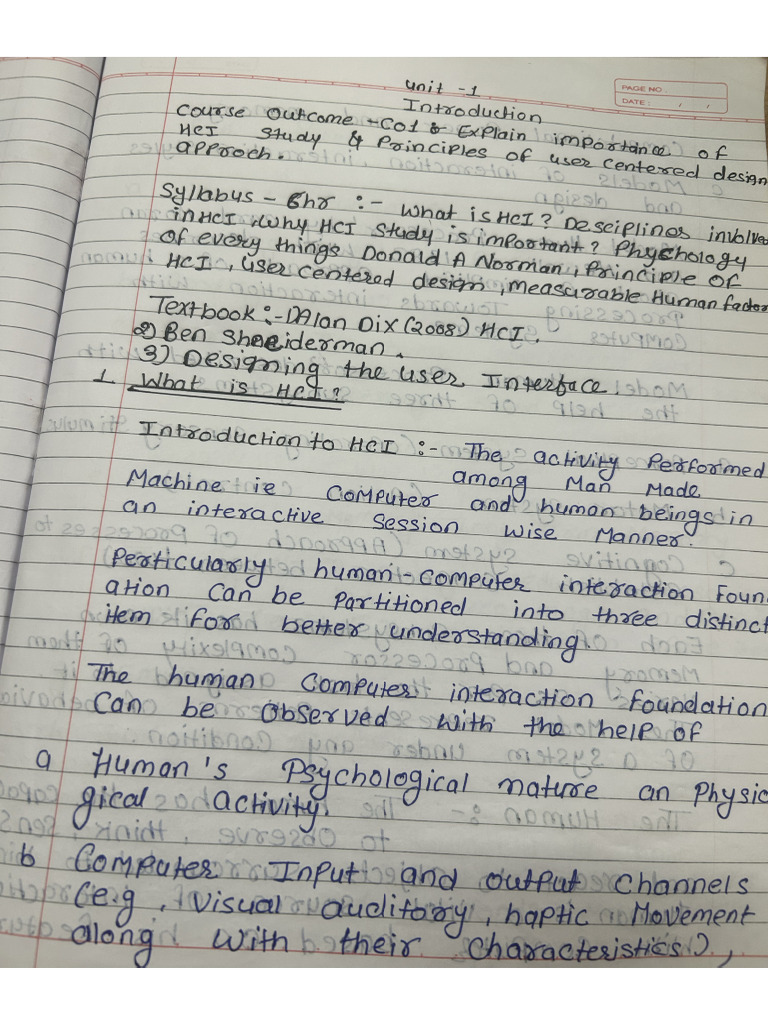 PAGE NO.
DATE: / /
Unit -1
Introduction
Course Outcome - CO1 & Explain importance of
HCI Study & Principles of user centered design
approch.
Syllabus - 6hr :- What is HCI? Desciplines involve
in HCI, Why HCI Study is important? Phychology
of every things Donald A Norman, Principle of
HCI, user centered design, measurable Human factor
Textbook :- DAlan Dix (2008) HCI.
2) Ben Shneiderman.
3) Designing the user Interface.
1. What is HCI?
Introduction to HCI :- The activity Performed
among Man Made
Machine ie Computer and human beings in
an interactive Session Wise Manner.
Perticularly human-computer interaction Foun
ation Can be Partitioned into three distinct
item for better understanding.
The human Computer interaction foundation
Can be observed with the help of
a Human's Psychological nature an Physio
gical activity.
b Computer Input and output Channels
(e.g, visual auditory, haptic Movement
along with their characteristics),